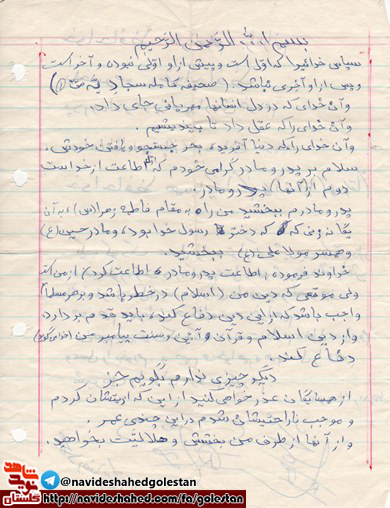 بسم الله الرحمن الرحیم
سپاس خدائیرا که اول است و پیش از او اولی نبوده و آخر است
و پس از او آخری نباشد. (صحیفه کامله سجادیه
و آن خدای که در دل انسانها مهربانی جای داد.
و آن خدای را که عقل داد تا بیندیشیم.
و آن خدای را که دنیا آفرید، بهر جستجو و یافتن خودش.
سلام بر پدر و مادر گرامی خودم که اطاعت از خداست
دوم از آنها) پدر و مادر.
پدر و مادرم ببخشید من را به مقام فاطمه زهرا(س)، به آن
یگانه زنی که دختر رسول خدا بود، و مادر حسین(ع)
و همسر مولا علی (ع) ببخشید.
خداوند فرموده، اطاعت پدر و مادر، اطاعت کردن از من است
ولی موقعی که دین من (اسلام) در خطر باشد و بر هر مسلمان
واجب باشد که از این دین دفاع کند، باید قدم بردارد،
و از دین اسلام و قرآن و آئین و سنت پیامبر من
دفاع کند.
دیگر چیزی ندارم بگویم جز
از همسایگان عذر خواهی کنید از این که اذیتشان کردم
و موجب ناراحتیشان شدم در این چند عمر.
و از آنها از طرف من بخشش و حلالیت بخواهید.
نوید شاهد
گلستان
@navideshahedgolestan
http://navideshahed.com/fa/golestan